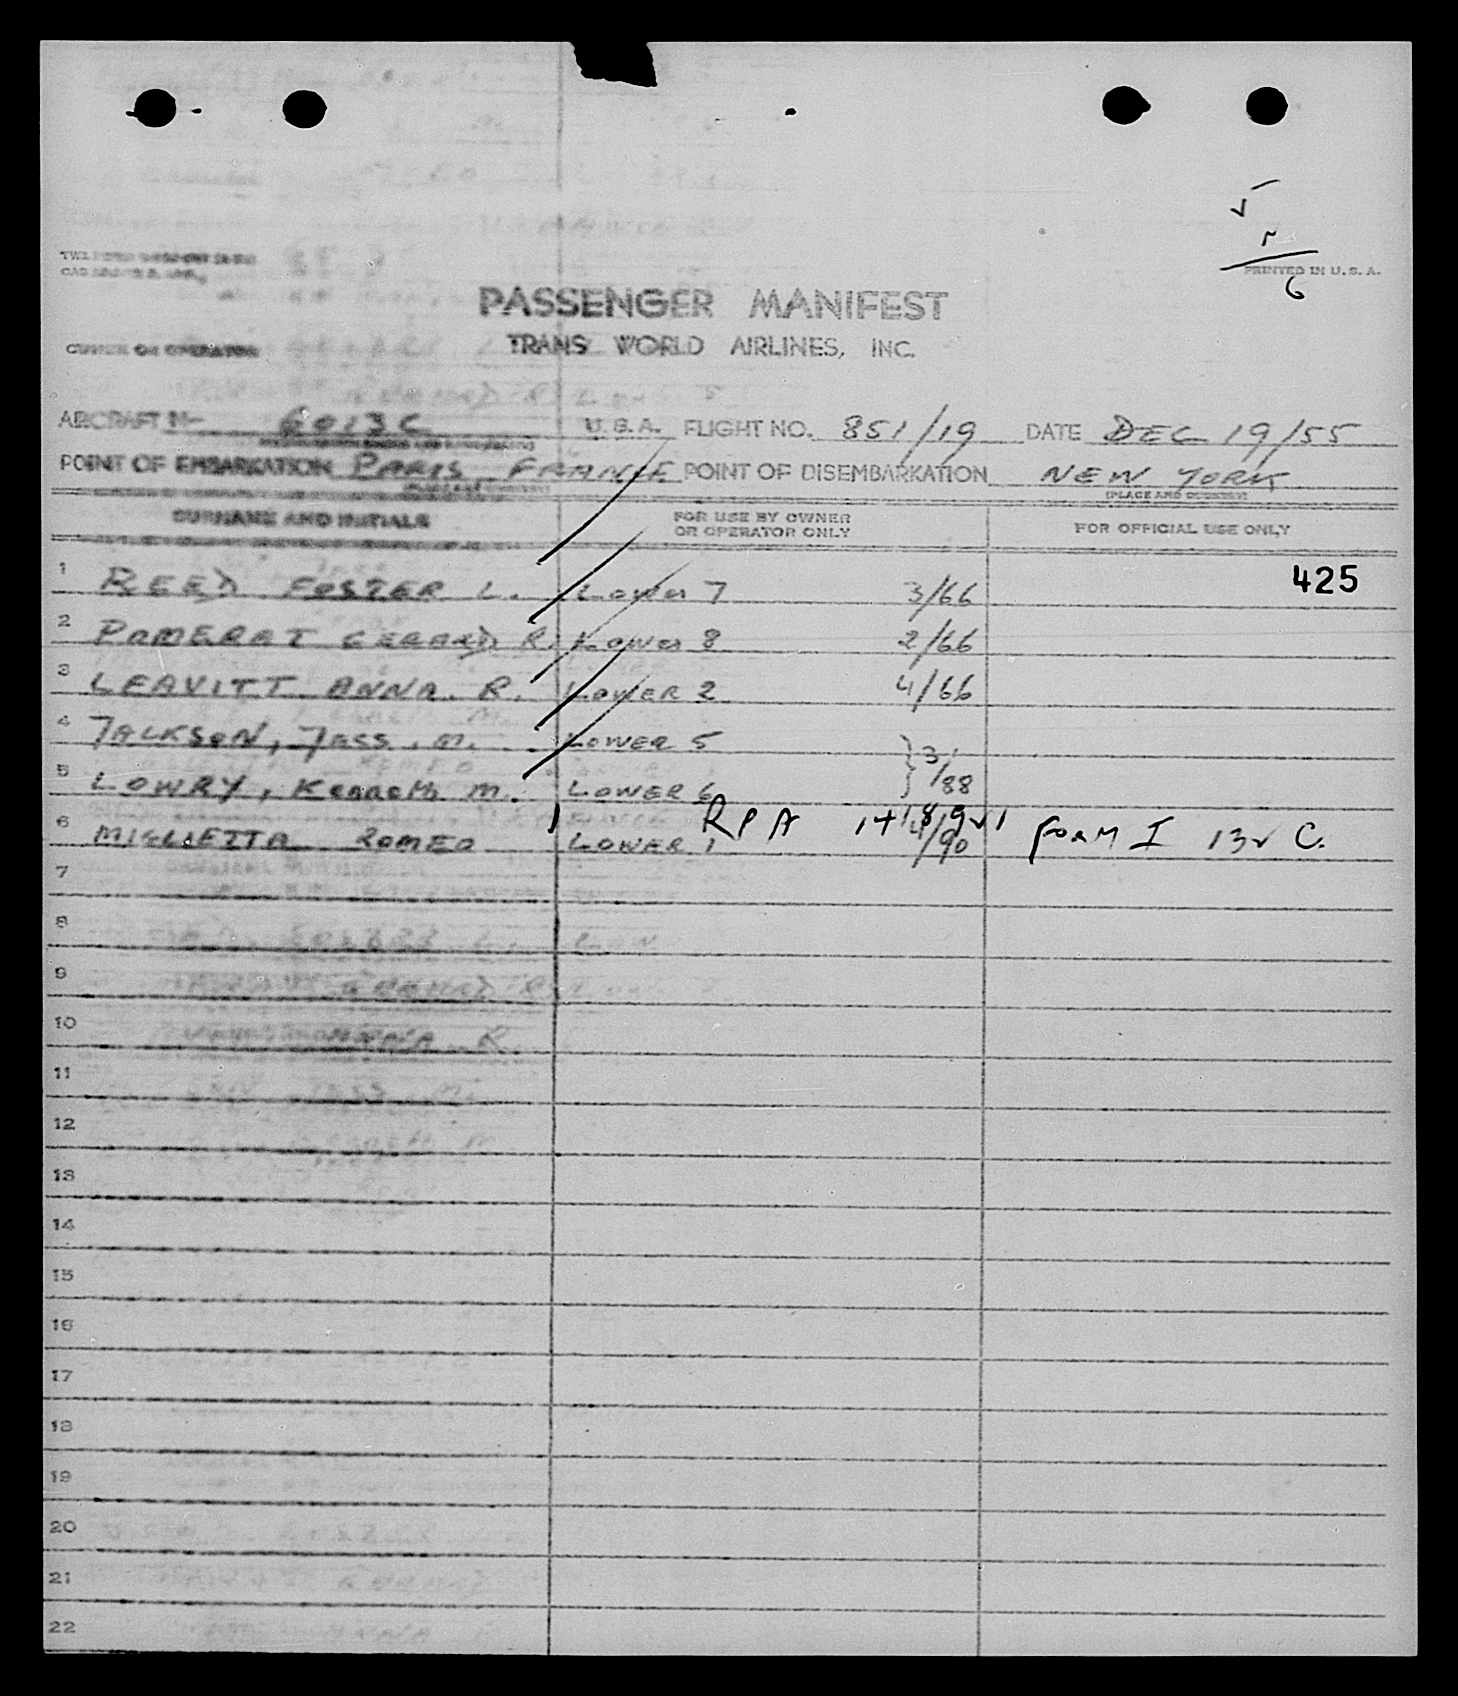 PRINTED IN U. S. A.
6
PASSENGER MANIFEST
OWNER OR OPERATOR TRANS WORLD AIRLINES, INC.
AIRCRAFT N- 6013C U. S. A. FLIGHT NO. 851/19 DATE DEC 19/55
POINT OF EMBARKATION PARIS FRANCE POINT OF DISEMBARKATION NEW YORK
(PLACE AND COUNTRY) (PLACE AND COUNTRY)
SURNAME AND INITIALS FOR USE BY OWNER OR OPERATOR ONLY FOR OFFICIAL USE ONLY
425
1 REED FOSTER L. Lower 7 3/66
2 POMERAT GERARD R. Lower 8 2/66
3 LEAVITT ANNA R. LOWER 2 4/66
4 JACKSON, JESS. M. LOWER 5 } 3/88
5 LOWRY, Kenneth M. LOWER 6
RPA FORM I C.
6 MIGLIETTA ROMEO LOWER 1
7
8
9
10
11
12
13
14
15
16
17
18
19
20
21
22